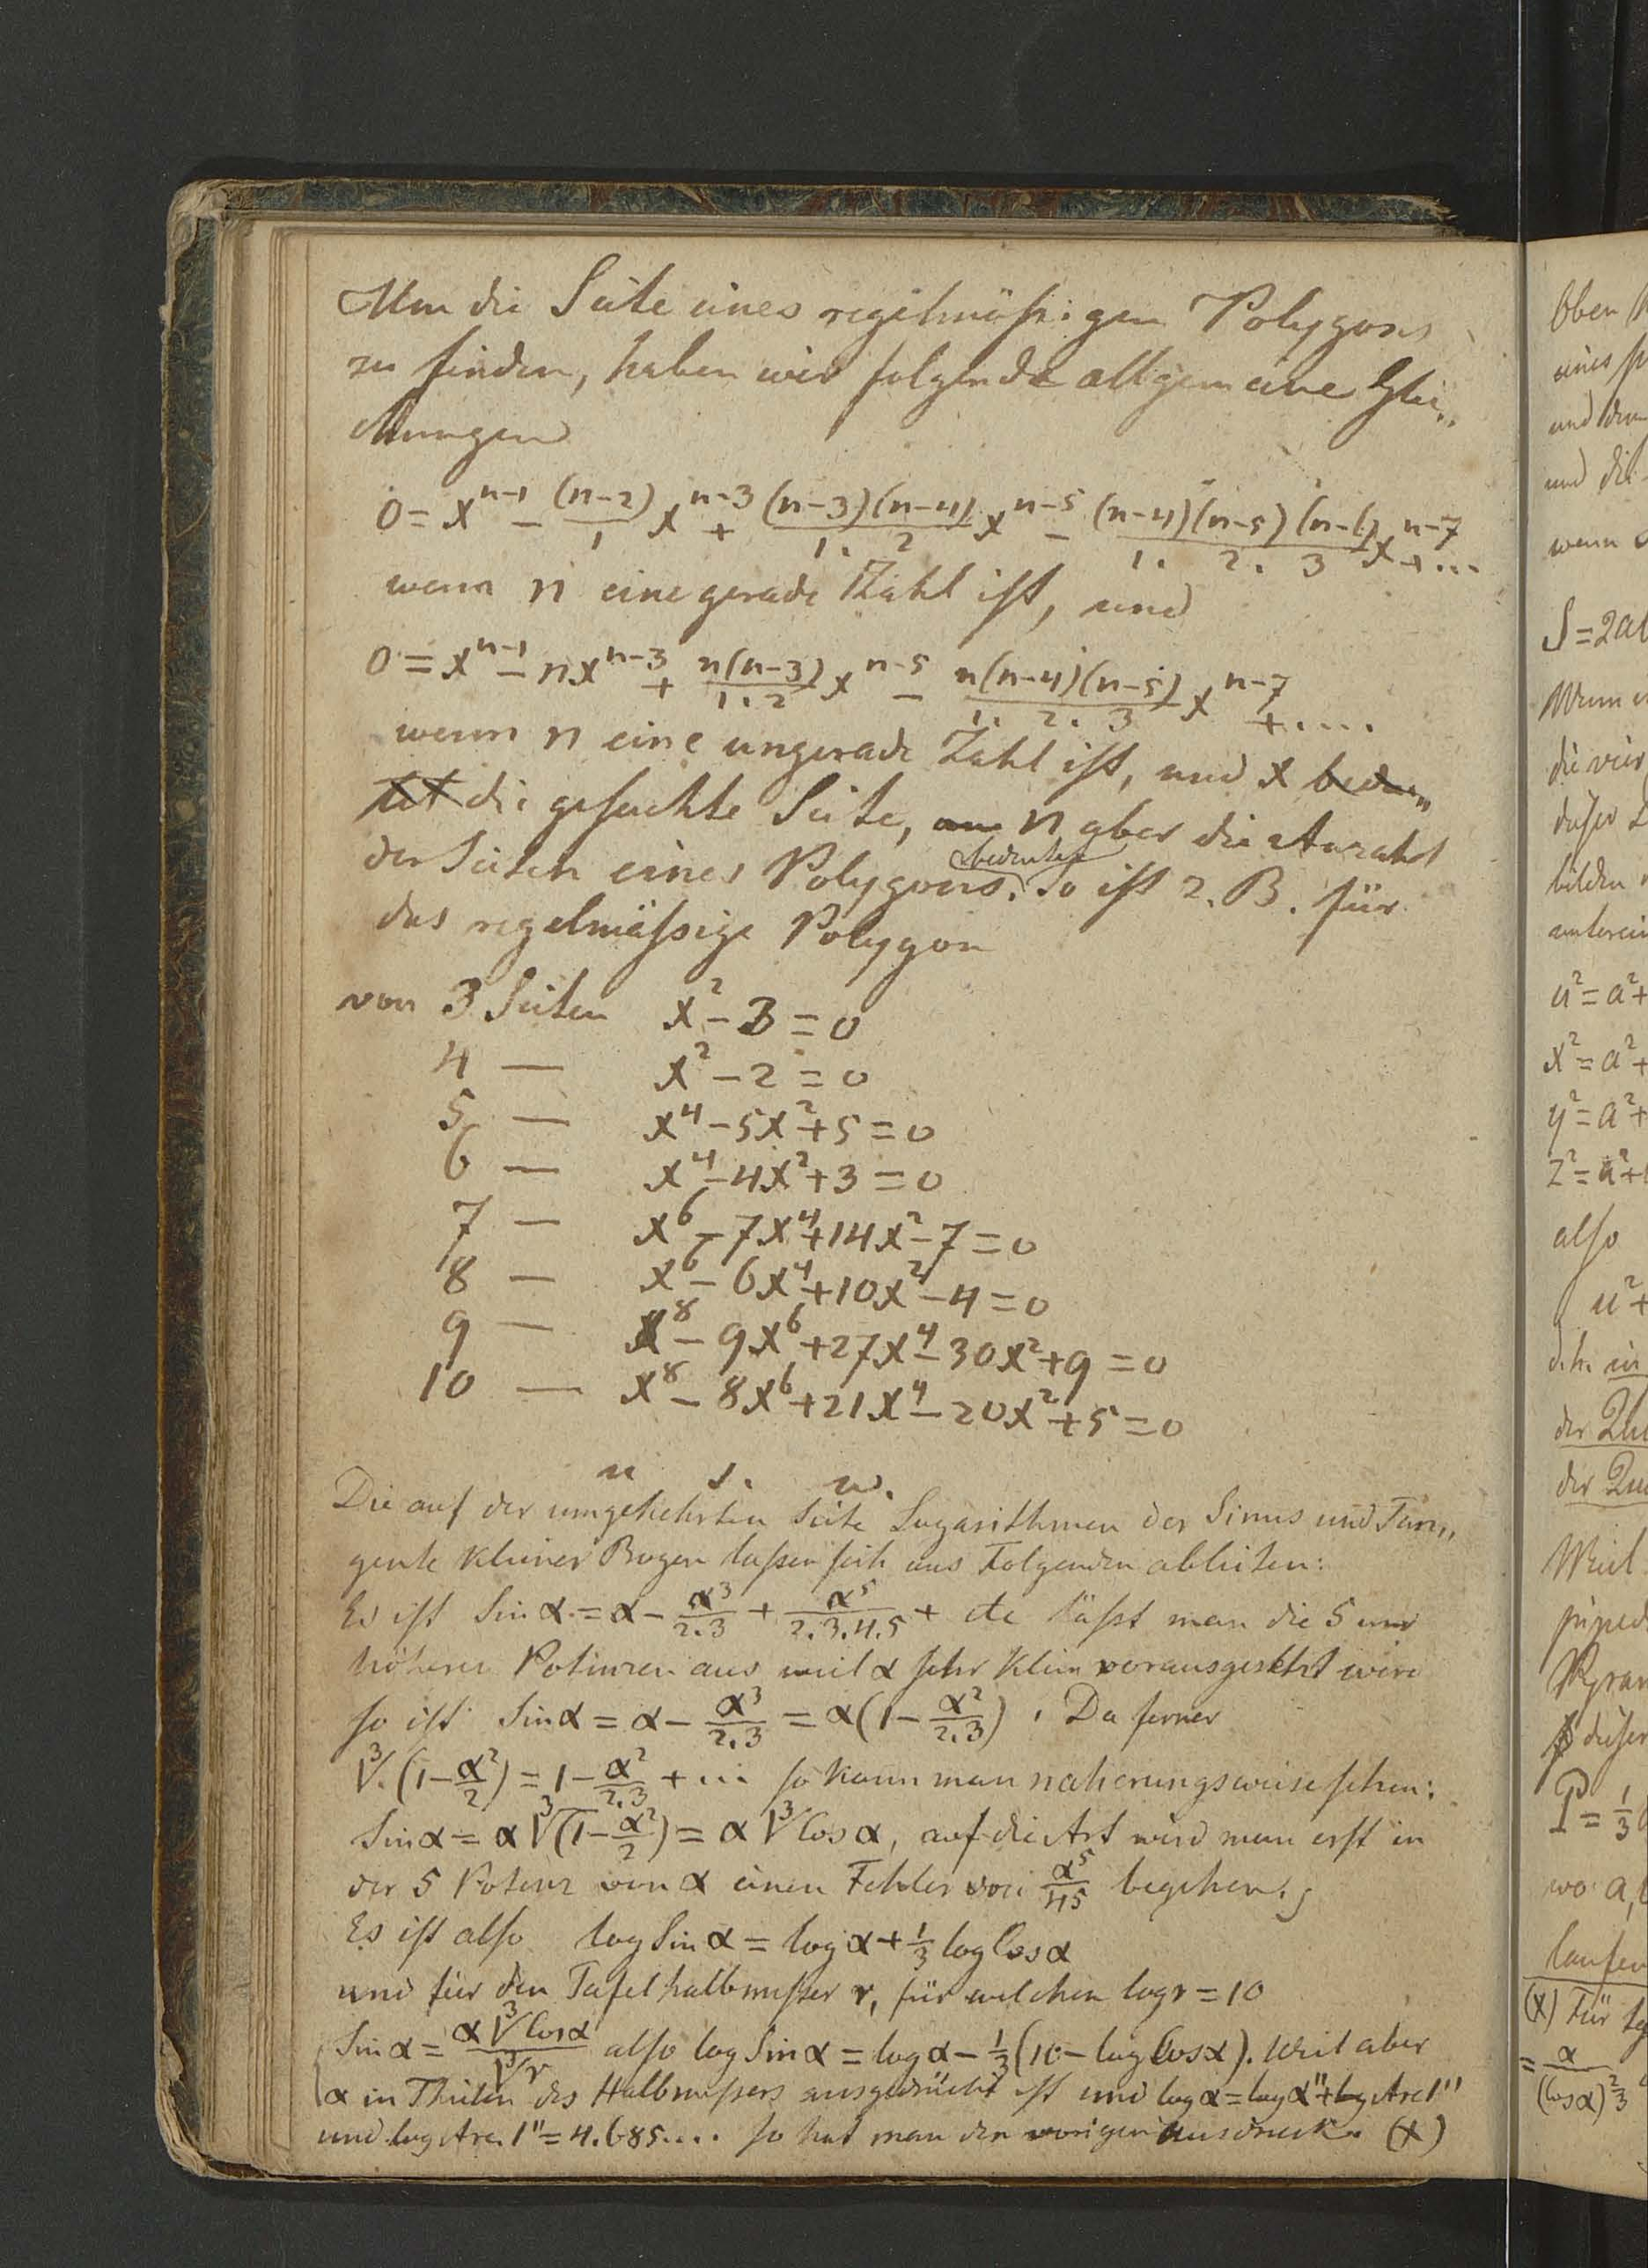 Um die Seite eines regelmäßigen Polygons
zu finden, haben wir folgende allgemeine Glei„
chungen
0 = x^{n-1} - \frac{(n-2)}{1} x^{n-3} + \frac{(n-3)(n-4)}{1. 2} x^{n-5} - \frac{(n-4)(n-5)(n-6)}{1. 2. 3} x^{n-7} + ...
wenn n eine gerade Zahl ist, und
0 = x^{n-1} - nx^{n-3} + \frac{n(n-3)}{1.2} x^{n-5} - \frac{n(n-4)(n-5)}{1. 2. 3} x^{n-7} + ....
wenn n eine ungerade Zahl ist, und x bedeu„
tet die gesuchte Seite, n aber die Anzahl
bedeutet
der Seiten eines Polygons. So ist z. B. für
das regelmäßige Polygon
von 3 Seiten x² - 3 = 0
4 — x² - 2 = 0
5 — x⁴ - 5x² + 5 = 0
6 — x⁴ - 4x² + 3 = 0
7 — x⁶ - 7x⁴ + 14x² - 7 = 0
8 — x⁶ - 6x⁴ + 10x² - 4 = 0
9 — x⁸ - 9x⁶ + 27x⁴ - 30x² + 9 = 0
10 — x⁸ - 8x⁶ + 21x⁴ - 20x² + 5 = 0
u s. w.
Die auf der umgekehrten Seite Logarithmen der Sinus und Tan„
gente kleiner Bogen laßen sich aus Folgenden ableiten:
Es ist Sin α = α - \frac{α³}{2.3} + \frac{α⁵}{2.3.4.5} + etc läßt man die 5 und
höheren Potenzen aus weil α sehr klein vorausgesetzt wird
so ist Sin α = α - \frac{α³}{2.3} = α(1 - \frac{α²}{2.3}). Da ferner
∛(1 - \frac{α²}{2}) = 1 - \frac{α²}{2.3} + ... so kann man naherungsweise sehen:
Sin α = α ∛(1 - \frac{α²}{2}) = α ∛Cos α, auf die Art wird man erst in
der 5 Potenz von α einen Fehler von \frac{α⁵}{45} begehen.
Es ist also log Sin α = log α + ⅓ log Cos α
und für den Tafelhalbmeßer r, für welchen log r = 10
Sin α = \frac{α ∛Cos α}{∛r} also log Sin α = log α - ⅓(10 - log Cos α). Weil aber
α in Theilen des Halbmeßers ausgedrückt ist und log α = log α" + log Arc 1"
und log Arc. 1" = 4.685.... so hat man den vorigen Ausdruck. (x)
Oben
eines
und
und die
wenn
S = 2a
Wenn
die vier
dieser
bilden
u² = a² +
x² = a² +
y² = a² +
z² = a² +
also
u² +
d. h. in
der
der
Weil
dieser
P = ⅓
wo a,
laufen
(x) Für
= \frac{α}{(cos α)^{\frac{2}{3}}}